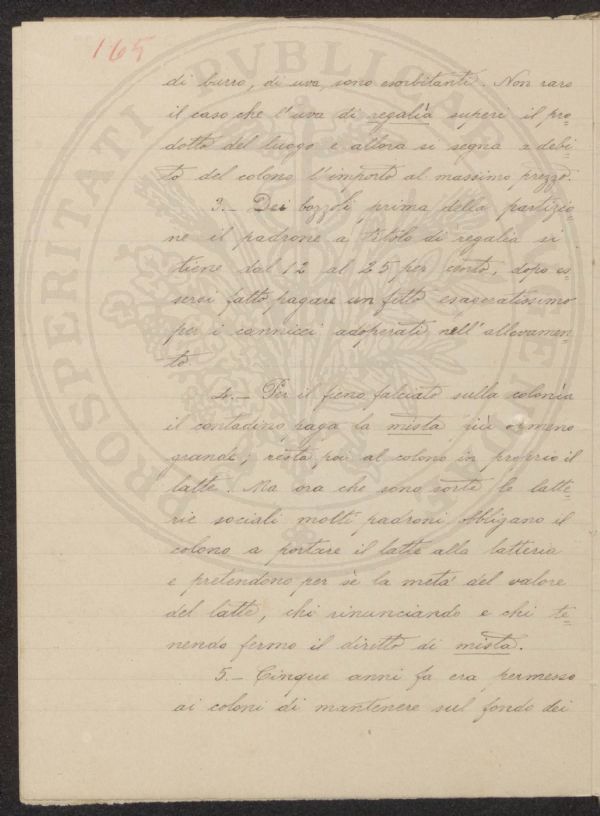 165
di burro, di uva, sono esorbitanti. Non raro
il caso che l'uva di regalìa superi il pro=
dotto del luogo e allora si segna a debi=
to del colono l'importo al massimo prezzo.
3.- Dei bozzoli prima della partizio=
ne il padrone a titolo di regalìa si
tiene dal 12 al 25 per cento, dopo es=
sersi fatto pagare un fitto esageratissimo
per i cannicci adoperati nell'allevamen=
to.
4.- Per il fieno falciato sulla colonìa
il contadino paga la mista più o meno
grande; resta poi al colono in proprio il
latte. Ma ora che sono sorte le latte=
rie sociali molti padroni obbligano il
colono a portare il latte alla latteria
e pretendono per sè la metà del valore
del latte, chi rinunciando e chi te=
nendo fermo il diritto di mista.
5.- Cinque anni fa era permesso
ai coloni di mantenere sul fondo dei
PROSPERITATI PVBLICAE AVGENDAE